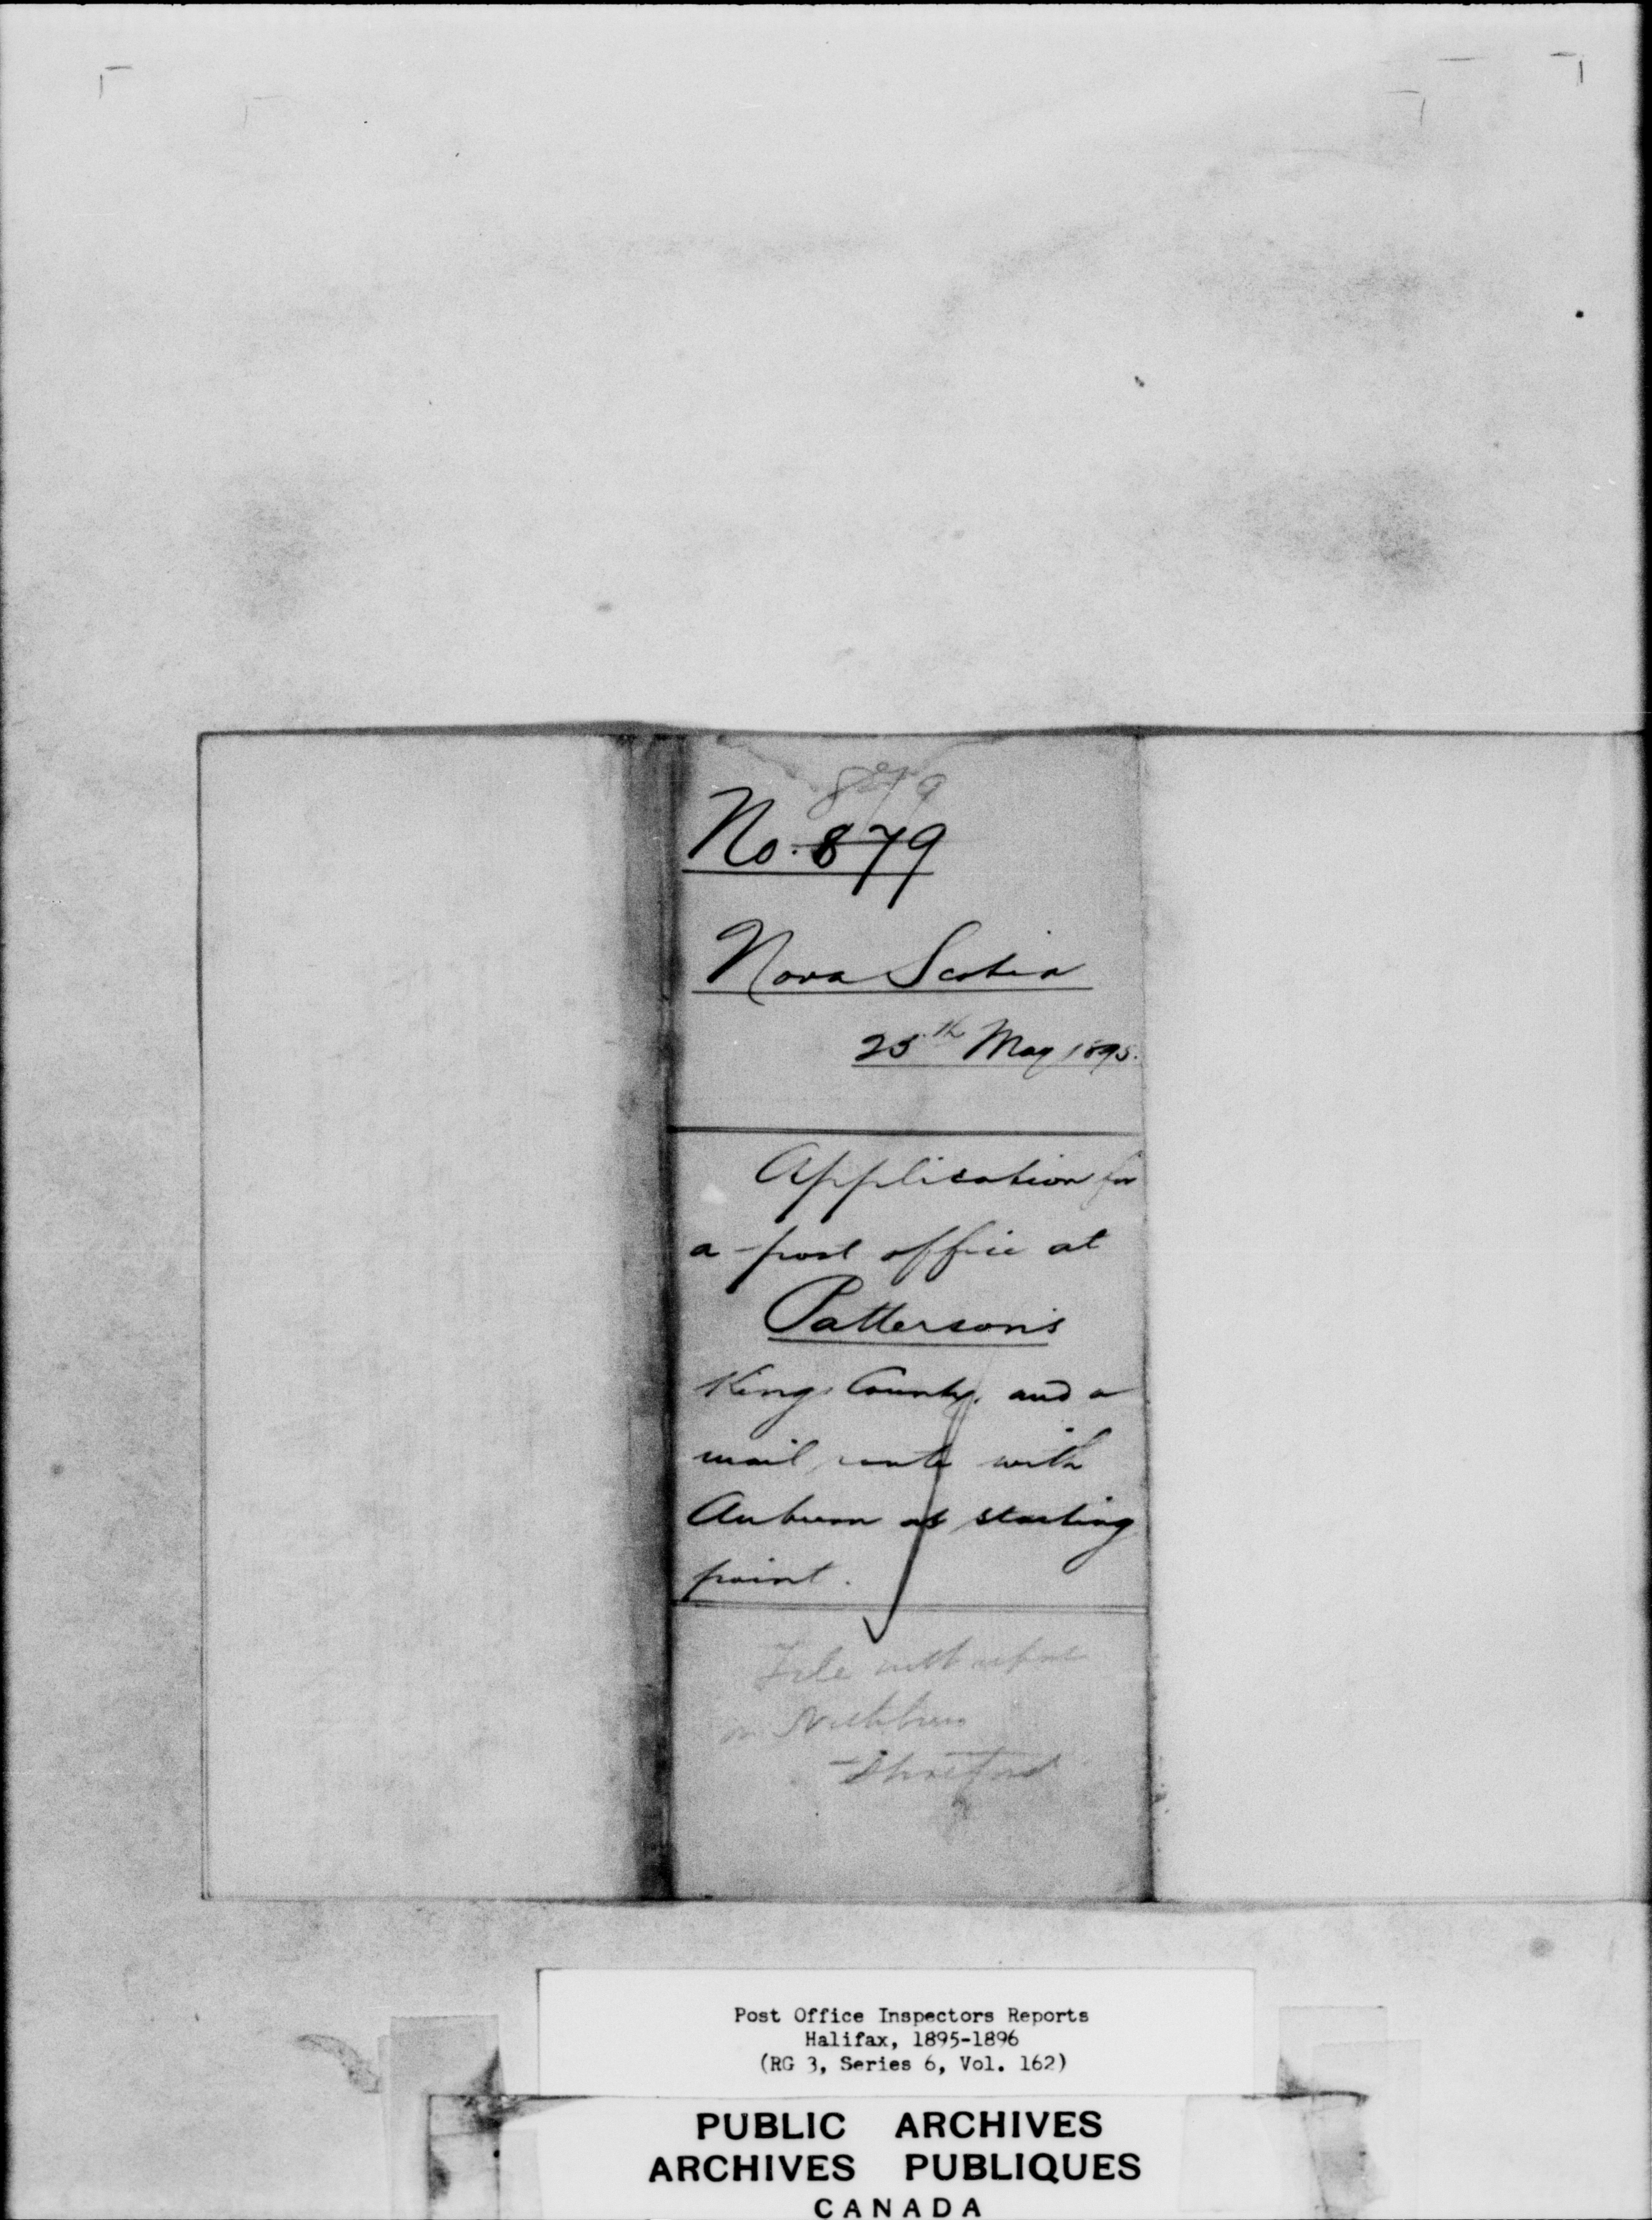 879
No. 879
Nova Scotia
25th May 1895.
Application for
a post office at
Patterson's
Kings County, and a
mail route with
Auburn as starting
point.
File with
Post Office Inspectors Reports
Halifax, 1895-1896
(RG 3, Series 6, Vol. 162)
PUBLIC ARCHIVES
ARCHIVES PUBLIQUES
CANADA